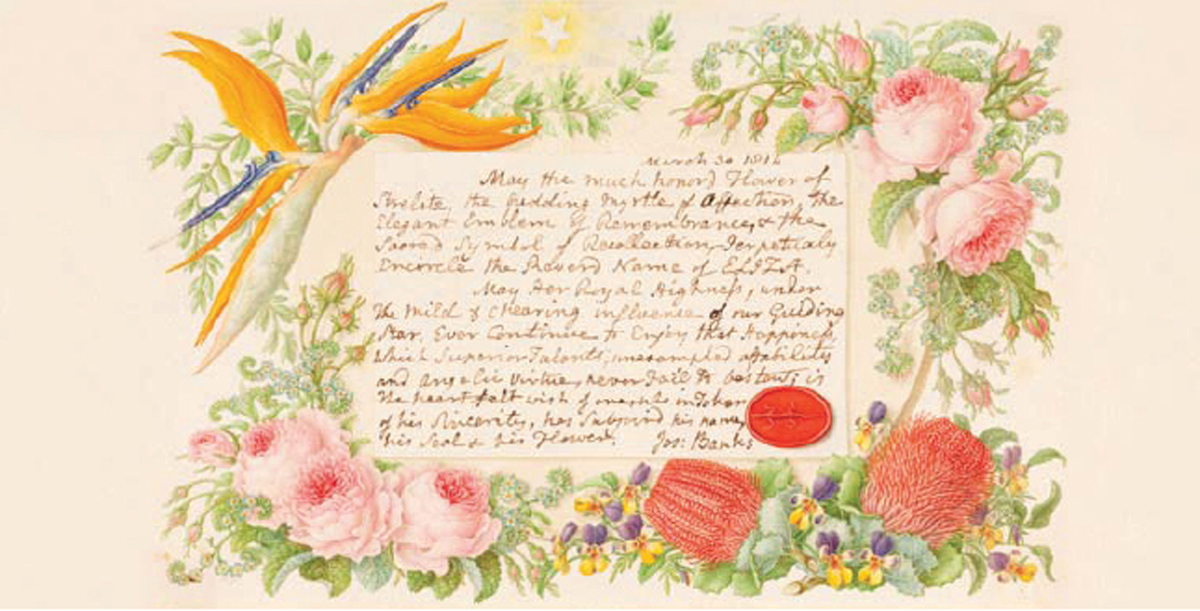 March 30 1814
May the much honord Flower of
Strelitz, the Wedding Myrtle of Affection, the
Elegant Emblem of Remembrance, & the
Sacred Symbol of Recollection, Perpetualy
Encircle the Reverd Name of ELIZA.
May Her Royal Highness, under
the mild & chearing influence of our Guiding
Star, Ever Continue to Enjoy that Happiness,
which Superior Talents, unexampled affability
and angelic virtue, never Fail to bestow; is
the heart felt wish of one, who in Token
of his Sincerity, has Subjoind his name,
his Seal & his Flower. Jos: Banks